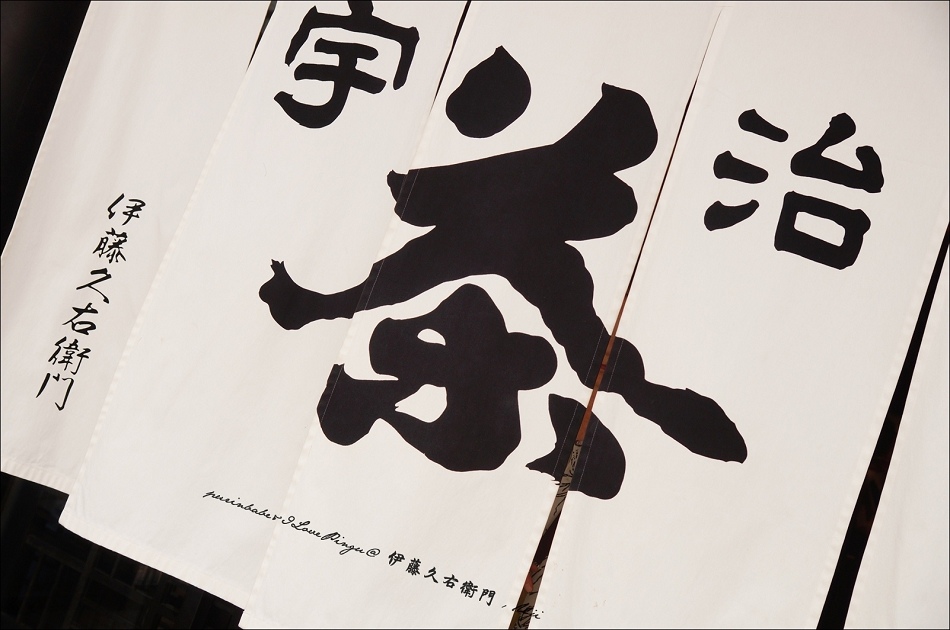 宇治
茶
伊藤久右衛門
purinbabe & I Love Pingu @ 伊藤久右衛門 , Uji